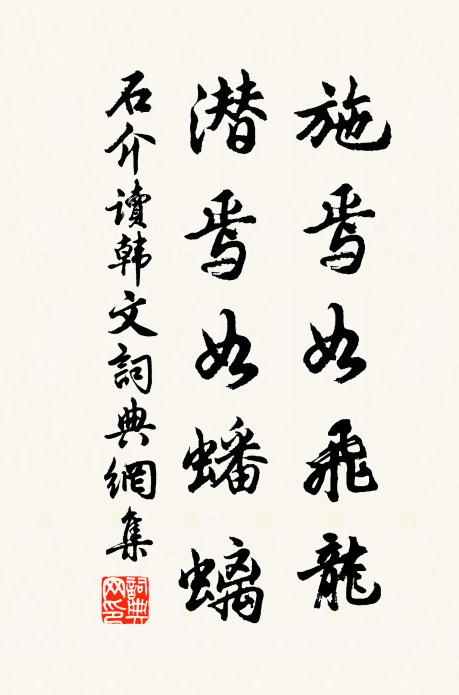 施焉如飛龍
潛焉如蟠螭
石介讀韩文詞典網集
詞典網印